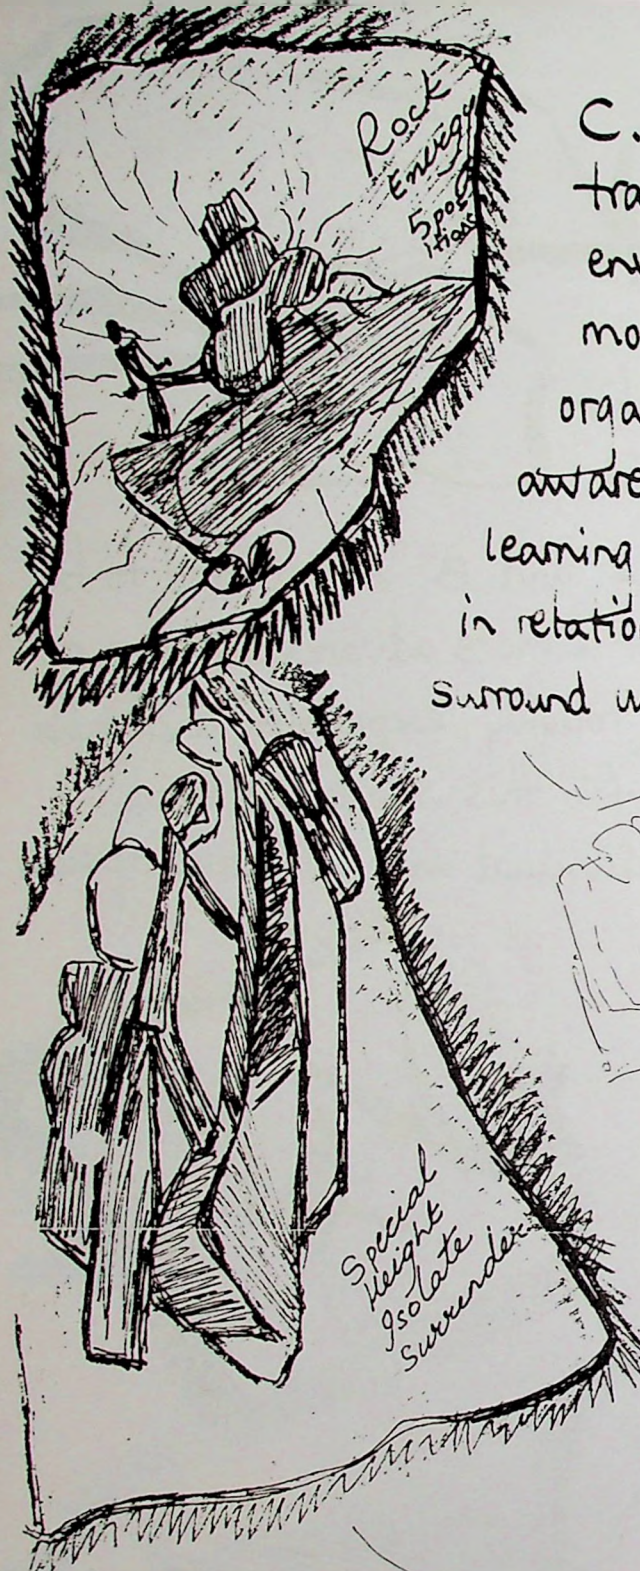 Rock
Energy
5 pos
itions
C.
tra
env
mo
orga
aware
learning
in relatio
surround w
Special
Height
Isolate
Surrender